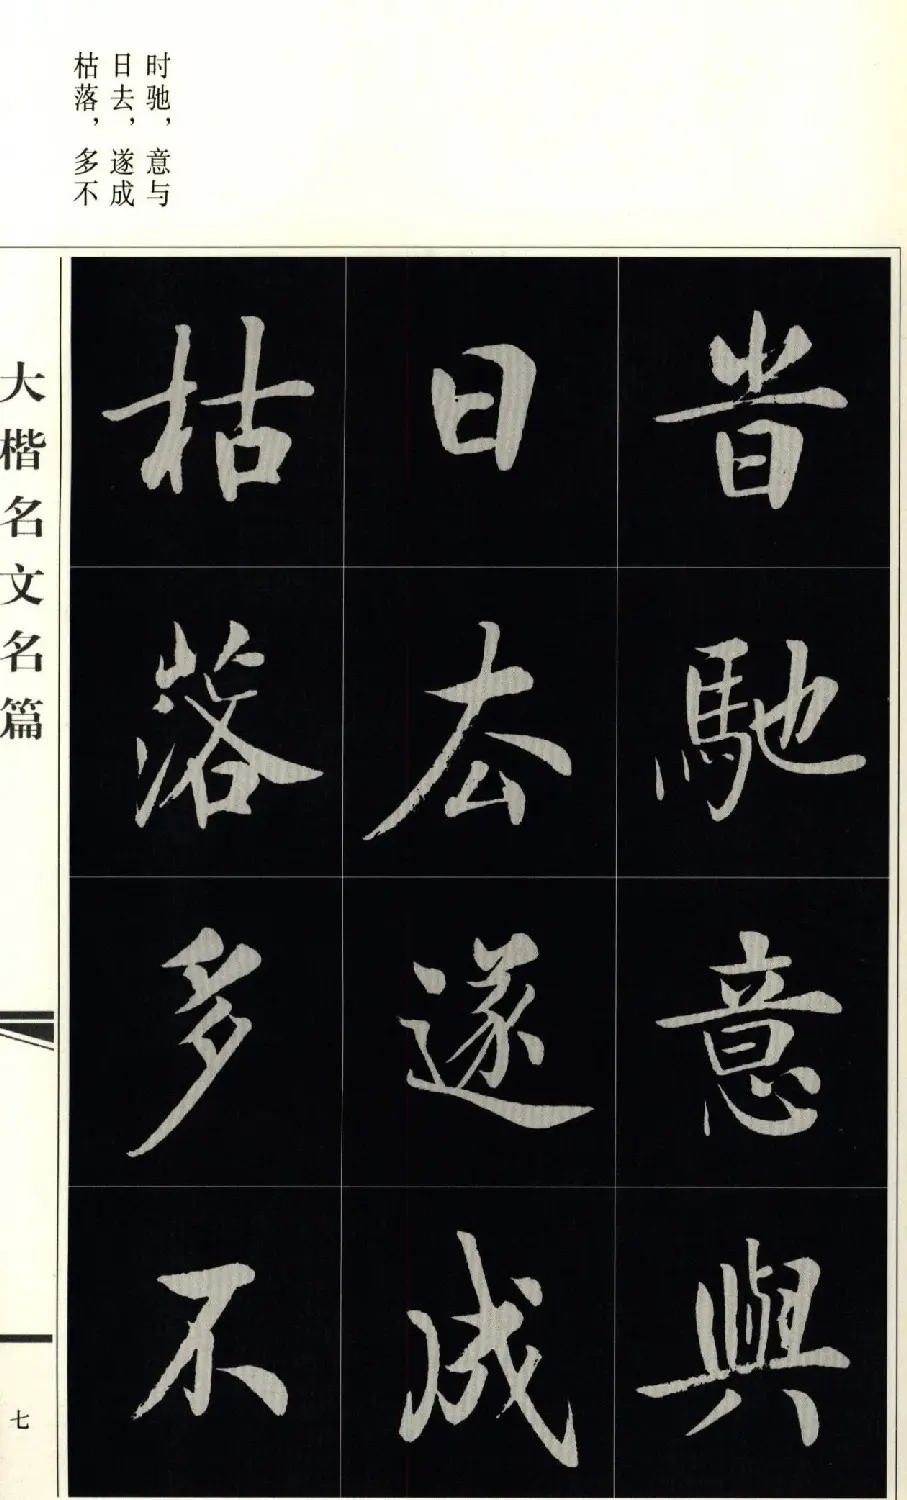 时驰，意与
日去，遂成
枯落，多不
旹馳意與
日去遂成
枯落多不
大楷名文名篇
七